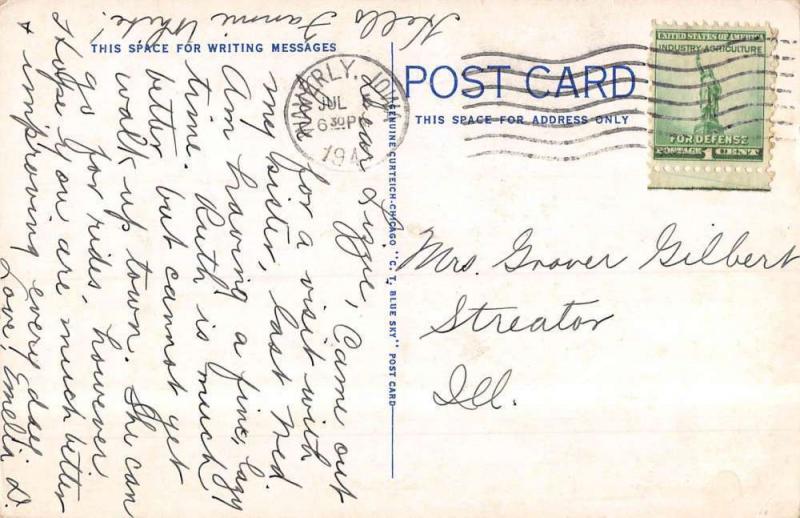 Hello
Fannie White!
THIS SPACE FOR WRITING MESSAGES
Dear Lizzie, Came out
here for a visit with
my sister, last Wed
Am having a fine, lazy
time. Ruth is much
better but cannot yet
walk up town. She can
go for rides, however.
Hope you are much better
& improving every day
Love, Emelia D.
WAVERLY, IOWA
JUL
6 30 P
194
"GENUINE CURTEICH-CHICAGO "C. T. BLUE SKY" POST CARD
POST CARD
THIS SPACE FOR ADDRESS ONLY
UNITED STATES OF AMERICA
INDUSTRY AGRICULTURE
FOR DEFENSE
POSTAGE 1 CENT
Mrs. Grover Gilbert
Streator
Ill.